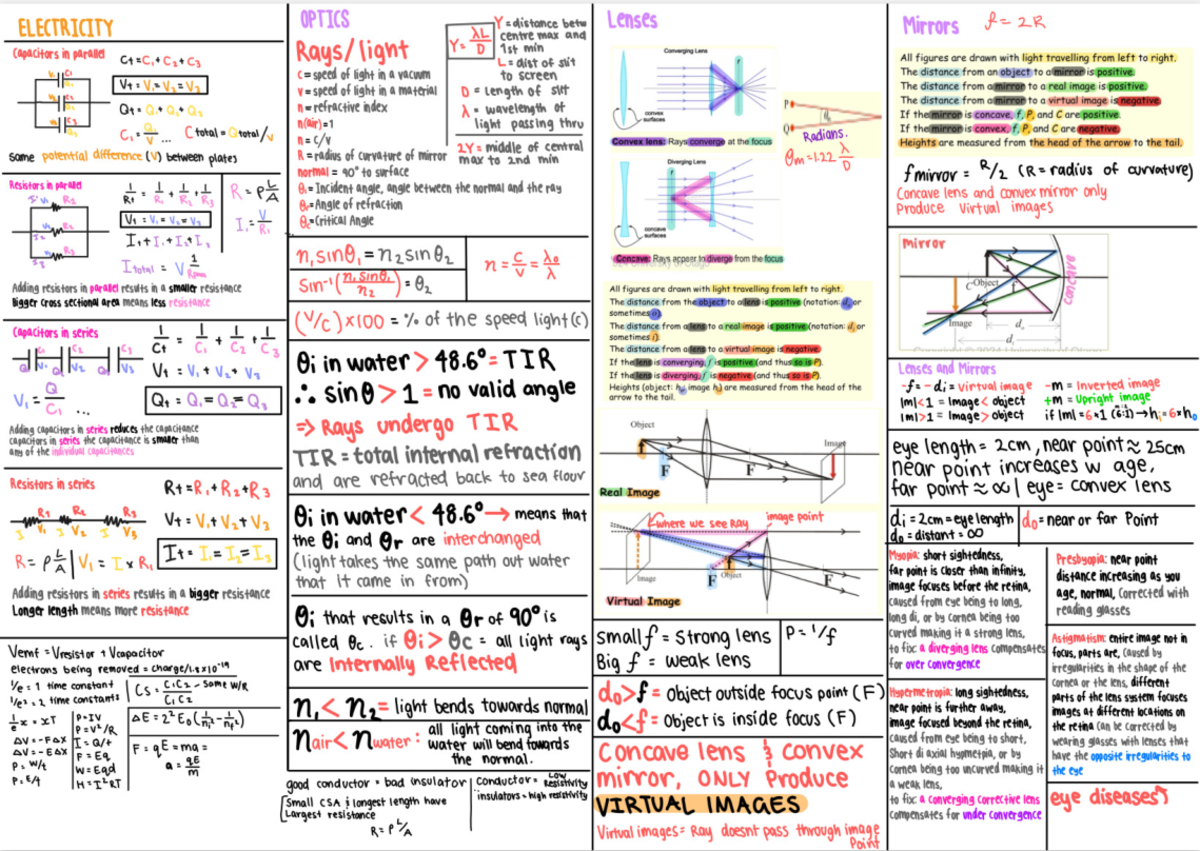 ELECTRICITY
Capacitors in parallel
Ct = C₁ + C₂ + C₃
Vt = V₁ = V₂ = V₃
Qt = Q₁ + Q₂ + Q₃
C₁ = Q₁/V₁ ... C total = Q total/V
same potential difference (V) between plates
Resistors in parallel
1/Rt = 1/R₁ + 1/R₂ + 1/R₃
R = ρ L/A
Vt = V₁ = V₂ = V₃
I₁ = V/R₁
I total = V
Adding resistors in parallel results in a smaller resistance
Bigger cross sectional area means less resistance
Capacitors in series
1/Ct = 1/C₁ + 1/C₂ + 1/C₃
Vt = V₁ + V₂ + V₃
V₁ = Q/C₁ ...
Qt = Q₁ = Q₂ = Q₃
Adding capacitors in series reduces the capacitance
capacitors in series the capacitance is smaller than
any of the individual capacitances
Resistors in series
Rt = R₁ + R₂ + R₃
R₁ R₂ R₃
Vt = V₁ + V₂ + V₃
I V₁ I V₂ I V₃
R = ρ L/A | V₁ = I x R₁
It = I₁ = I₂ = I₃
Adding resistors in series results in a bigger resistance
Longer length means more resistance
Vemf = Vresistor + Vcapacitor
1/e = 1 time constant
1/e² = 2 time constants
Cs = C₁C₂ - some W/R
C₁C₂
ΔV = -FΔX
ΔV = -EΔX
P = W/t
P = E/t
P = IV
P = V²/R
I = Q/t
F = Eq
W = Eqd
H = I²RT
F = qE = ma =
a = qE/m
OPTICS
Rays/light
C = speed of light in a vacuum
v = speed of light in a material
n = refractive index
n(air) = 1
n = c/v
R = radius of curvature of mirror
normal = 90° to surface
θᵢ = Incident angle, angle between the normal and the ray
θᵣ = Angle of refraction
θc = Critical Angle
Y = λL/D
Y = distance betw
centre max and
1st min
L = dist of slit
to screen
D = length of slit
λ = wavelength of
light passing thru
2Y = middle of central
max to 2nd min
n₁sinθ₁ = n₂sinθ₂
n = C/V = λ₀/λ
Sin⁻¹(n₁ sinθ₁/n₂) = θ₂
(V/C) x 100 = % of the speed light (c)
θi in water > 48.6° = TIR
∴ sinθ > 1 = no valid angle
⇒ Rays undergo TIR
TIR = total internal refraction
and are refracted back to sea flour
θi in water < 48.6° → means that
the θi and θr are interchanged
(light takes the same path out water
that it came in from)
θi that results in a θr of 90° is
called θc. if θi > θc = all light rays
are Internally Reflected
n₁ < n₂ = light bends towards normal
nair < nwater : all light coming into the
water will bend towards
the normal.
good conductor = bad insulator
Small CSA & longest length have
Largest resistance
R = ρ L/A
conductor = Low
Resistivity
insulators = high resistivity
Lenses
Converging Lens
f
convex
surfaces
Convex lens: Rays converge at the focus
P
Q
θ₀
Radians.
θm = 1.22 λ/D
Diverging Lens
f
concave
surfaces
Concave: Rays appear to diverge from the focus
All figures are drawn with light travelling from left to right.
The distance from the object to a lens is positive (notation: dₒ or
sometimes o).
The distance from a lens to a real image is positive (notation: dᵢ or
sometimes i).
The distance from a lens to a virtual image is negative.
If the lens is converging, f is positive (and thus so is P).
If the lens is diverging, f is negative (and thus so is P).
Heights (object: hₒ, image hᵢ) are measured from the head of the
arrow to the tail.
Object
Image
F F
Real Image
where we see Ray
image point
Image
F Object F
Virtual Image
small f = Strong lens
Big f = weak lens
P = 1/f
do > f = Object outside focus point (F)
do < f = Object is inside focus (F)
Concave lens & convex
mirror, ONLY Produce
VIRTUAL IMAGES
Virtual images = Ray doesnt pass through image
Point
Mirrors
f = 2R
All figures are drawn with light travelling from left to right.
The distance from an object to a mirror is positive.
The distance from a mirror to a real image is positive.
The distance from a mirror to a virtual image is negative.
If the mirror is concave, f, P, and C are positive.
If the mirror is convex, f, P, and C are negative.
Heights are measured from the head of the arrow to the tail.
f mirror = R/2 (R = radius of curvature)
Concave lens and convex mirror only
Produce Virtual images
mirror
C Object
concave
Image
dₒ
dᵢ
Lenses and Mirrors
-f = -di = virtual image
|m|<1 = Image < object
|m|>1 = Image > object
-m = Inverted image
+m = Upright image
if |m| = 6*1 (6:1) → hi = 6*ho
eye length = 2cm, near point ≈ 25cm
near point increases w age,
far point ≈ ∞ | eye = convex lens
di = 2cm = eye length
do = distant = ∞
do = near or far Point
Myopia: short sightedness,
far point is closer than infinity,
image focuses before the retina,
caused from eye being to long,
long di, or by Cornea being too
curved making it a strong lens,
to fix a diverging lens compensates
for over convergence
Hypermetropia: long sightedness,
near point is further away,
image focused beyond the retina,
caused from eye being to short,
Short di axial hypmetpia, or by
Cornea being too uncurved making it
a weak lens,
to fix a converging corrective lens
compensates for under convergence
Presbyopia: near point
distance increasing as you
age, normal, Corrected with
reading glasses
Astigmatism: entire image not in
focus, parts are, Caused by
irregularities in the shape of the
Cornea or the lens, different
parts of the lens system focuses
images at different locations on
the retina Can be Corrected by
wearing glasses with lenses that
have the opposite irregularities to
the eye
eye diseases↑